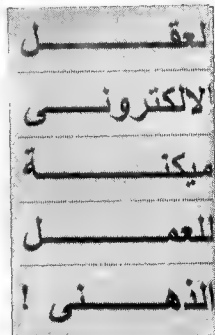 لعقل
الالكترونى
ميكنة
للعمل
الذهنى !